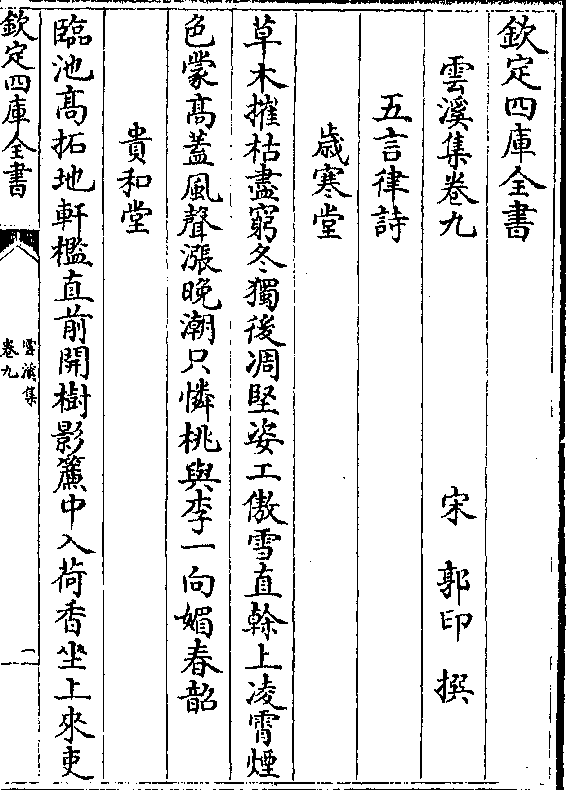 欽定四庫全書
雲溪集卷九
宋 郭印 撰
五言律詩
歲寒堂
草木摧枯盡窮冬獨後凋堅姿工傲雪直榦上凌霄煙
色蒙髙葢風聲漲晚潮只憐桃與李一向媚春韶
貴和堂
臨池髙拓地軒檻直前開樹影簾中入荷香坐上來吏
欽定四庫全書
雲溪集
卷九
一